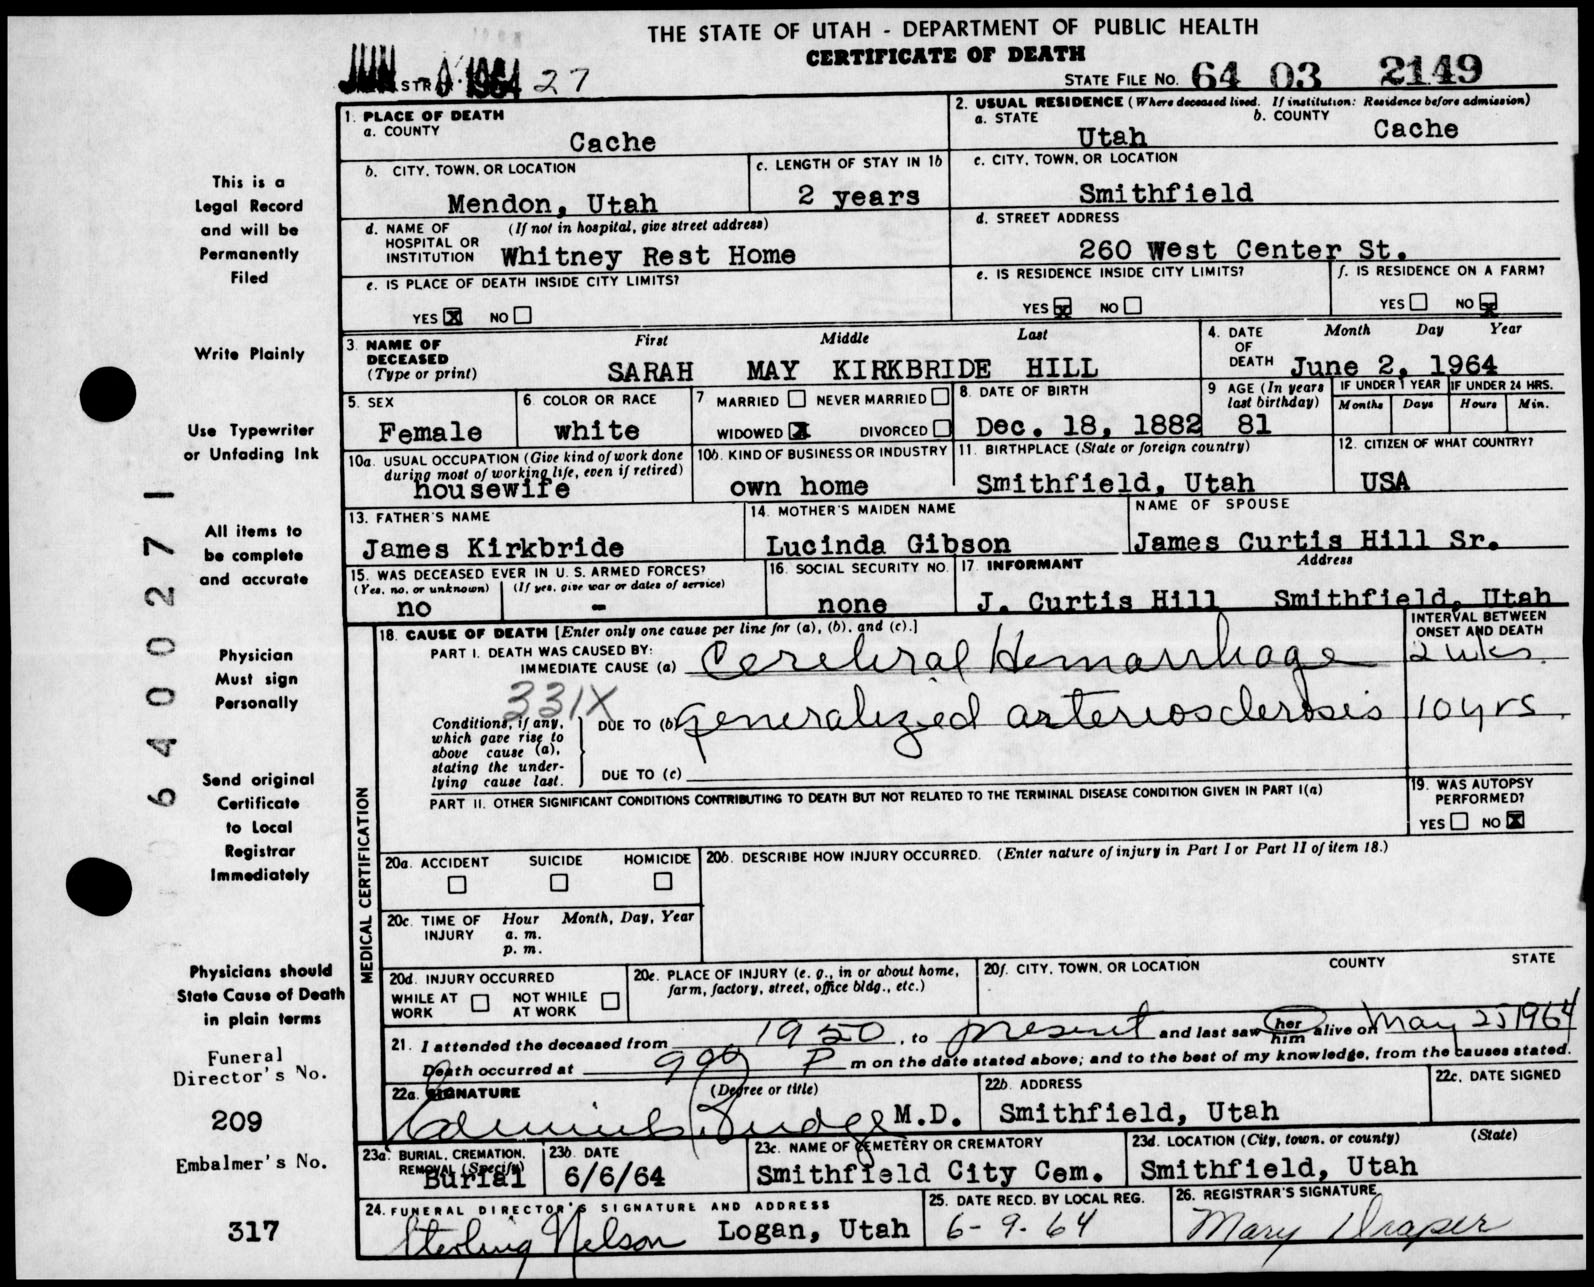 THE STATE OF UTAH - DEPARTMENT OF PUBLIC HEALTH
CERTIFICATE OF DEATH
27
STATE FILE NO. 64 03 2149
This is a
Legal Record
and will be
Permanently
Filed
Write Plainly
Use Typewriter
or Unfading Ink
All items to
be complete
and accurate
Physician
Must sign
Personally
Send original
Certificate
to Local
Registrar
Immediately
Physicians should
State Cause of Death
in plain terms
Funeral
Director's No.
209
Embalmer's No.
317
6400271
1. PLACE OF DEATH
a. COUNTY
Cache
2. USUAL RESIDENCE (Where deceased lived. If institution: Residence before admission)
a. STATE
Utah
b. COUNTY
Cache
b. CITY, TOWN, OR LOCATION
Mendon, Utah
c. LENGTH OF STAY IN 1b
2 years
c. CITY, TOWN, OR LOCATION
Smithfield
d. NAME OF HOSPITAL OR INSTITUTION (If not in hospital, give street address)
Whitney Rest Home
d. STREET ADDRESS
260 West Center St.
e. IS PLACE OF DEATH INSIDE CITY LIMITS?
YES X NO
e. IS RESIDENCE INSIDE CITY LIMITS?
YES X NO
f. IS RESIDENCE ON A FARM?
YES NO X
3. NAME OF DECEASED (Type or print)
First Middle Last
SARAH MAY KIRKBRIDE HILL
4. DATE OF DEATH Month Day Year
June 2, 1964
5. SEX
Female
6. COLOR OR RACE
white
7 MARRIED NEVER MARRIED
WIDOWED X DIVORCED
8. DATE OF BIRTH
Dec. 18, 1882
9 AGE (In years last birthday)
81
IF UNDER 1 YEAR
Months Days
IF UNDER 24 HRS.
Hours Min.
10a. USUAL OCCUPATION (Give kind of work done during most of working life, even if retired)
housewife
10b. KIND OF BUSINESS OR INDUSTRY
own home
11. BIRTHPLACE (State or foreign country)
Smithfield, Utah
12. CITIZEN OF WHAT COUNTRY?
USA
13. FATHER'S NAME
James Kirkbride
14. MOTHER'S MAIDEN NAME
Lucinda Gibson
NAME OF SPOUSE
James Curtis Hill Sr.
15. WAS DECEASED EVER IN U. S. ARMED FORCES?
(Yes, no, or unknown) (If yes, give war or dates of service)
no -
16. SOCIAL SECURITY NO.
none
17. INFORMANT Address
J. Curtis Hill Smithfield, Utah
MEDICAL CERTIFICATION
18. CAUSE OF DEATH [Enter only one cause per line for (a), (b), and (c).]
PART I. DEATH WAS CAUSED BY:
IMMEDIATE CAUSE (a) Cerebral Hemarrhage
INTERVAL BETWEEN ONSET AND DEATH
2 wks.
331X
Conditions, if any, which gave rise to above cause (a), stating the underlying cause last.
DUE TO (b) generalized arteriosclerosis
10 yrs.
DUE TO (c)
PART II. OTHER SIGNIFICANT CONDITIONS CONTRIBUTING TO DEATH BUT NOT RELATED TO THE TERMINAL DISEASE CONDITION GIVEN IN PART I(a)
19. WAS AUTOPSY PERFORMED?
YES NO X
20a. ACCIDENT SUICIDE HOMICIDE
20b. DESCRIBE HOW INJURY OCCURRED. (Enter nature of injury in Part I or Part II of item 18.)
20c. TIME OF INJURY Hour Month, Day, Year
a. m.
p. m.
20d. INJURY OCCURRED
WHILE AT WORK NOT WHILE AT WORK
20e. PLACE OF INJURY (e. g., in or about home, farm, factory, street, office bldg., etc.)
20f. CITY, TOWN, OR LOCATION COUNTY STATE
21. I attended the deceased from 1950, to present and last saw her him alive on May 25 1964
Death occurred at 9 00 P m on the date stated above; and to the best of my knowledge, from the causes stated.
22a. SIGNATURE (Degree or title)
Budge M.D.
22b. ADDRESS
Smithfield, Utah
22c. DATE SIGNED
23a. BURIAL, CREMATION, REMOVAL (Specify)
Burial
23b. DATE
6/6/64
23c. NAME OF CEMETERY OR CREMATORY
Smithfield City Cem.
23d. LOCATION (City, town, or county) (State)
Smithfield, Utah
24. FUNERAL DIRECTOR'S SIGNATURE AND ADDRESS
Sterling Nelson Logan, Utah
25. DATE RECD. BY LOCAL REG.
6-9-64
26. REGISTRAR'S SIGNATURE
Mary Draper